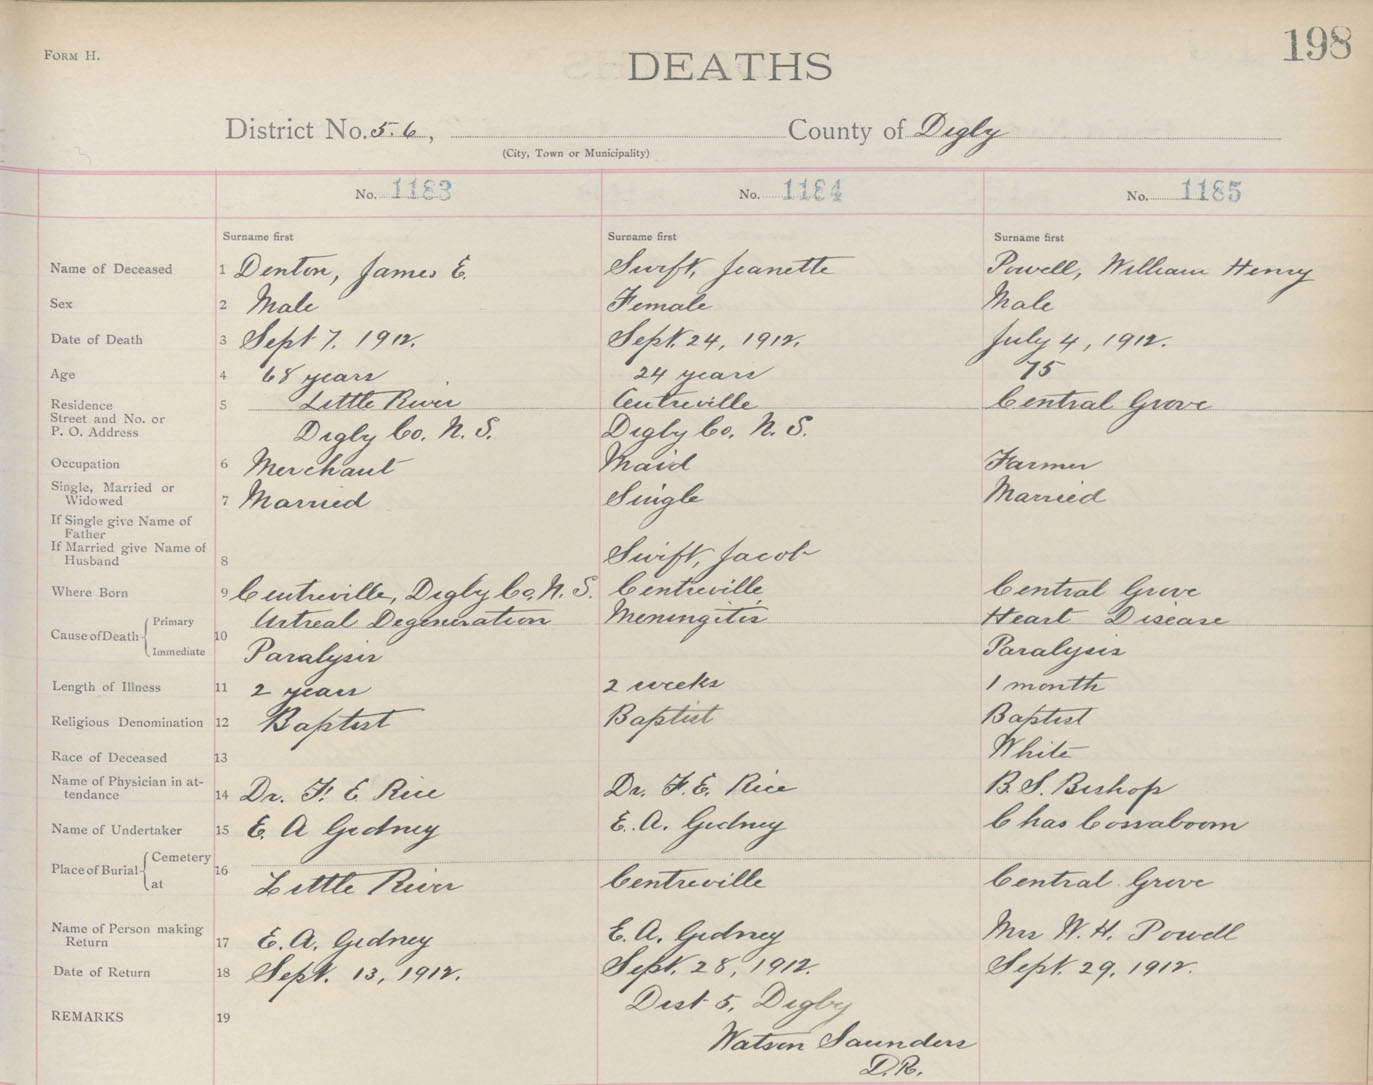 FORM H.
DEATHS
198
District No. 5.6, County of Digby
(City, Town or Municipality)
No. 1183 No. 1184 No. 1185
Surname first Surname first Surname first
Name of Deceased 1 Denton, James E. Swift, Jeanette Powell, William Henry
Sex 2 Male Female Male
Date of Death 3 Sept 7. 1912. Sept. 24, 1912. July 4, 1912.
Age 4 68 years 24 years 75
Residence 5 Little River Centreville Central Grove
Street and No. or
P. O. Address Digby Co. N. S. Digby Co. N. S.
Occupation 6 Merchant Maid Farmer
Single, Married or
Widowed 7 Married Single Married
If Single give Name of
Father
If Married give Name of
Husband 8 Swift, Jacob
Where Born 9 Centreville, Digby Co. N. S. Centreville Central Grove
Cause of Death Primary 10 Artreal Degeneration Meningitis Heart Disease
Immediate Paralysis Paralysis
Length of Illness 11 2 years 2 weeks 1 month
Religious Denomination 12 Baptist Baptist Baptist
Race of Deceased 13 White
Name of Physician in at-
tendance 14 Dr. F. E Rice Dr. F. E. Rice B. S. Bishop
Name of Undertaker 15 E. A Gidney E. A. Gidney Chas Cossaboom
Place of Burial Cemetery 16
at Little River Centreville Central Grove
Name of Person making
Return 17 E. A. Gidney E. A. Gidney Mrs W. H. Powell
Date of Return 18 Sept. 13, 1912. Sept. 28, 1912. Sept. 29, 1912.
REMARKS 19 Dist 5, Digby
Watson Saunders
D. R.